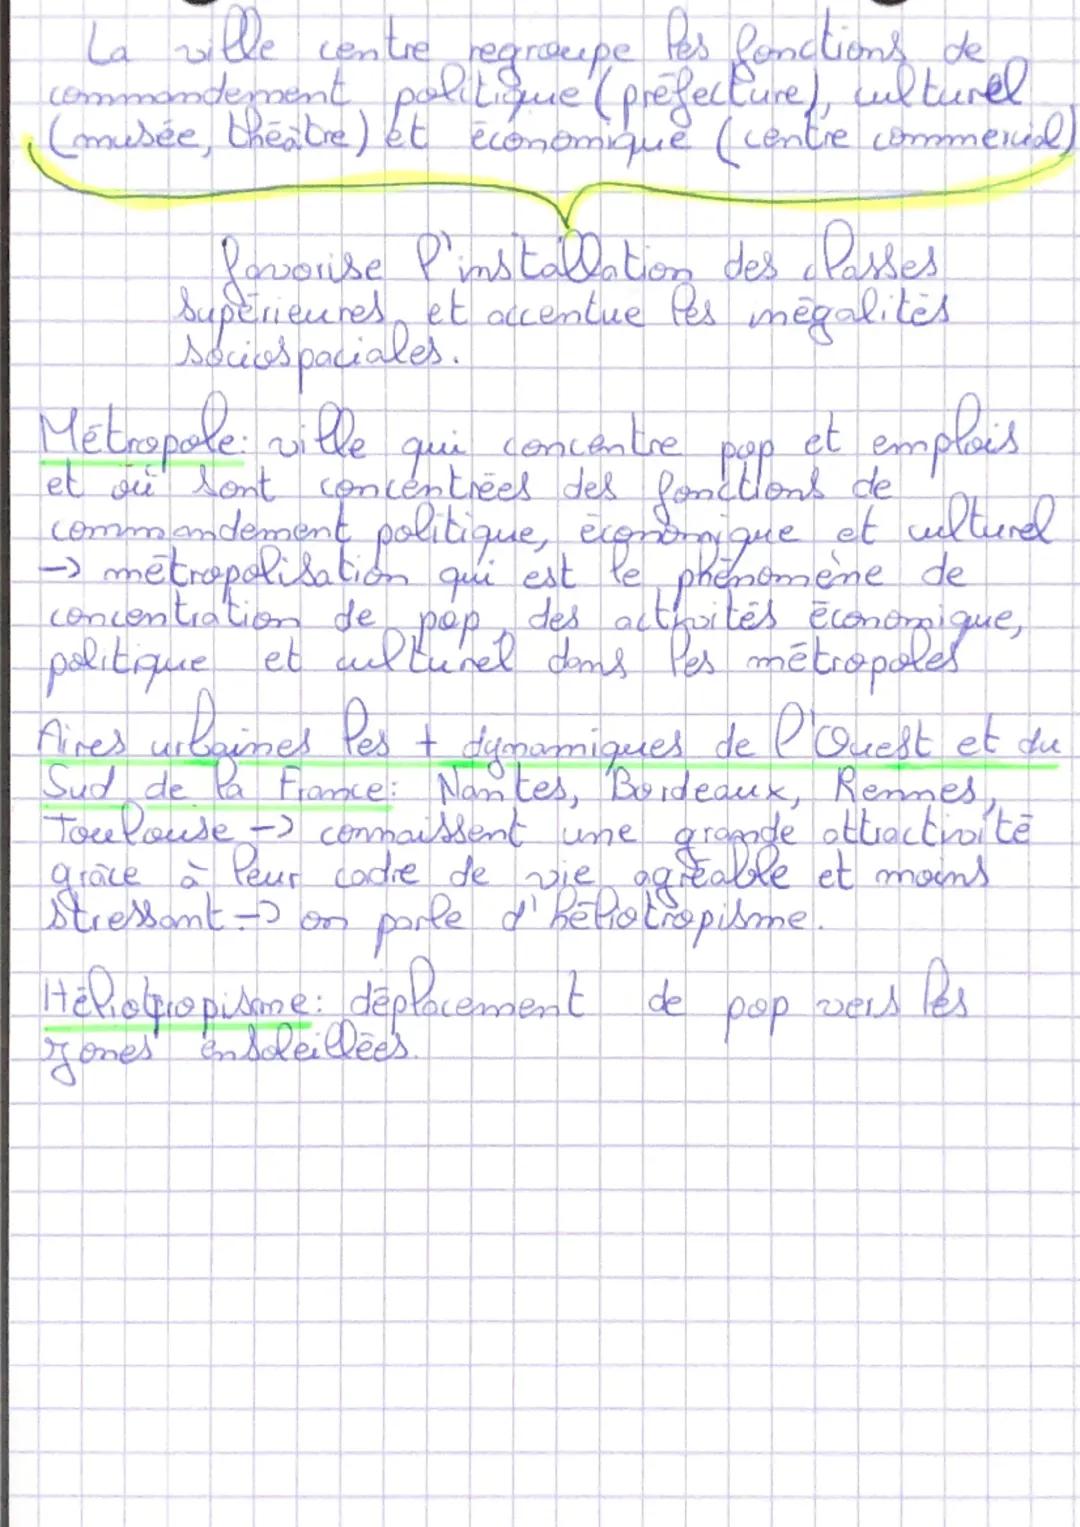 La ville centre regroupe les fonctions de
commandement politique (préfecture), culturel
(musée, théâtre) et économique (centre commercial)
favorise l'installation des classes
supérieures et accentue les inégalités
sociospaciales.
Métropole: ville qui concentre pop et emplois
et où sont concentrées des fonctions de
commandement politique, économique et culturel
-> métropolisation qui est le phénomène de
concentration de pop, des activités économique,
politique et culturel dans les métropoles
Aires urbaines les + dynamiques de l'Ouest et du
Sud de la France: Nantes, Bordeaux, Rennes,
Toulouse -> connaissent une grande attractivité
grâce à leur cadre de vie agréable et moins
stressant -> on parle d'héliotropisme.
Héliotropisme: déplacement de pop vers les
zones ensoleillées.